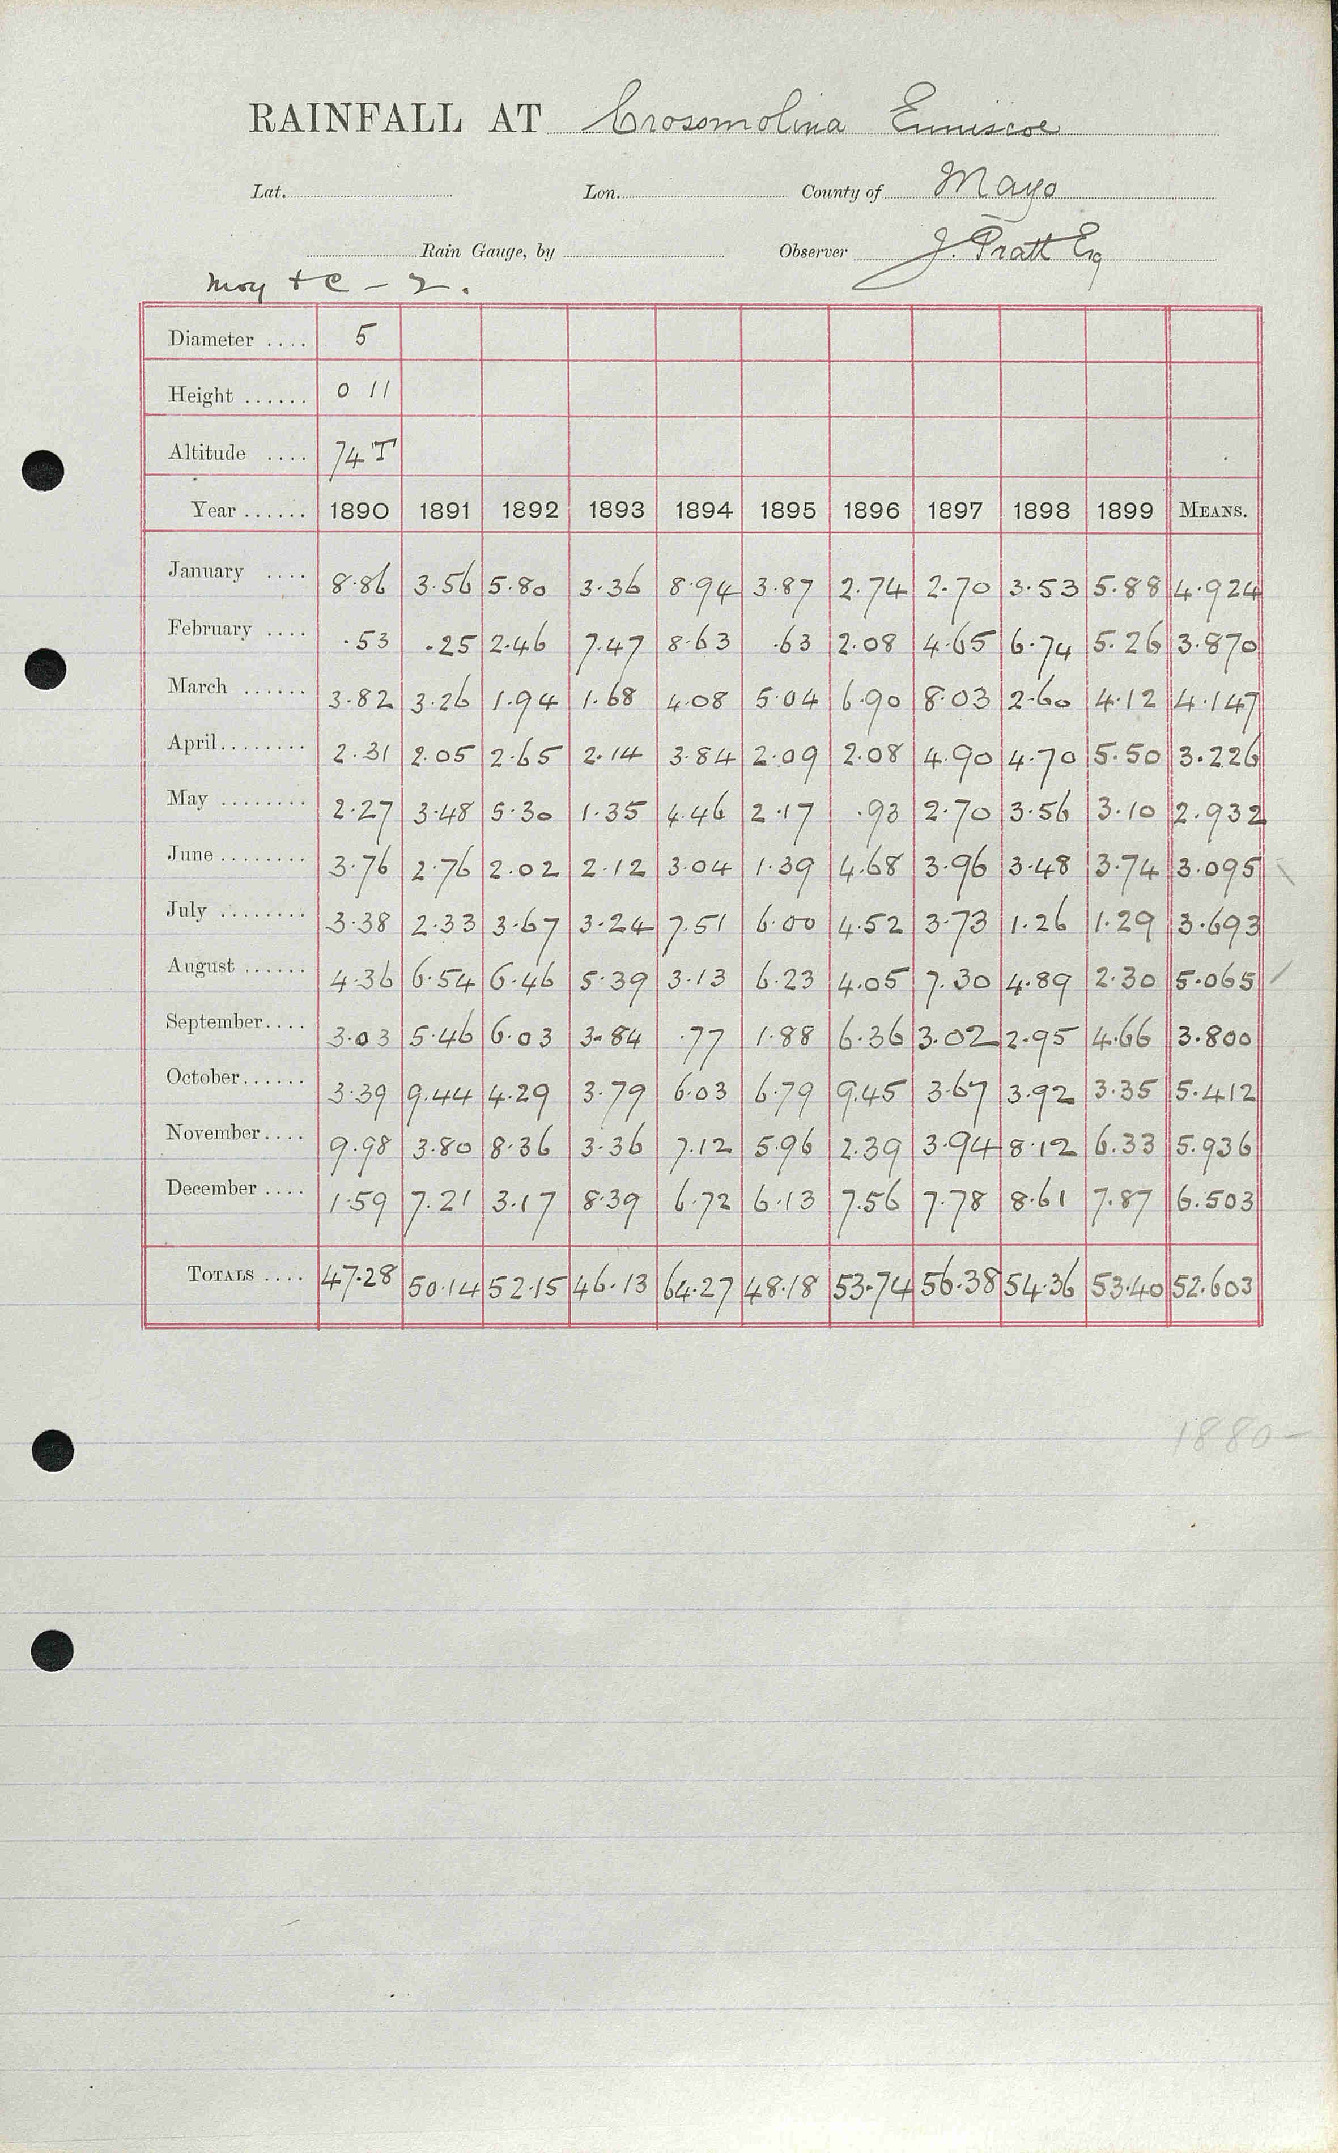 RAINFALL AT Crossmolina Enniscoe
Lat. Lon. County of Mayo
Rain Gauge, by Observer J. Pratt Esq
Moy + C - 2.
Diameter .... 5
Height ...... 0 11
Altitude .... 74 T
Year ...... 1890 1891 1892 1893 1894 1895 1896 1897 1898 1899 MEANS.
January .... 8.86 3.56 5.80 3.36 8.94 3.87 2.74 2.70 3.53 5.88 4.924
February .... .53 .25 2.46 7.47 8.63 .63 2.08 4.65 6.74 5.26 3.870
March ...... 3.82 3.26 1.94 1.68 4.08 5.04 6.90 8.03 2.60 4.12 4.147
April ........ 2.31 2.05 2.65 2.14 3.84 2.09 2.08 4.90 4.70 5.50 3.226
May ........ 2.27 3.48 5.30 1.35 4.46 2.17 .93 2.70 3.56 3.10 2.932
June ........ 3.76 2.76 2.02 2.12 3.04 1.39 4.68 3.96 3.48 3.74 3.095
July ........ 3.38 2.33 3.67 3.24 7.51 6.00 4.52 3.73 1.26 1.29 3.693
August ...... 4.36 6.54 6.46 5.39 3.13 6.23 4.05 7.30 4.89 2.30 5.065
September .... 3.03 5.46 6.03 3.84 .77 1.88 6.36 3.02 2.95 4.66 3.800
October ...... 3.39 9.44 4.29 3.79 6.03 6.79 9.45 3.67 3.92 3.35 5.412
November .... 9.98 3.80 8.36 3.36 7.12 5.96 2.39 3.94 8.12 6.33 5.936
December .... 1.59 7.21 3.17 8.39 6.72 6.13 7.56 7.78 8.61 7.87 6.503
TOTALS .... 47.28 50.14 52.15 46.13 64.27 48.18 53.74 56.38 54.36 53.40 52.603
1880-